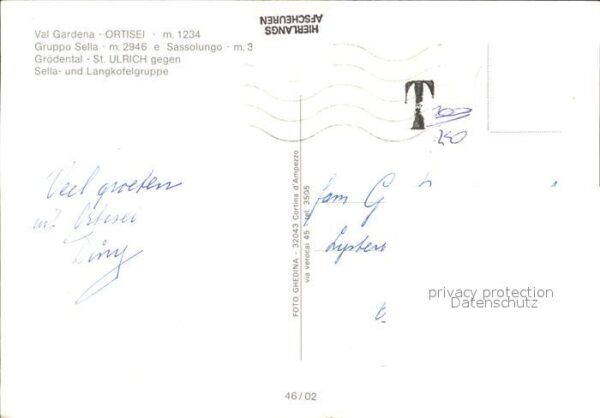 Val Gardena - ORTISEI - m. 1234
Gruppo Sella - m. 2946 e Sassolungo - m. 3
Grödental - St. ULRICH gegen
Sella- und Langkofelgruppe
HIERLANGS
AFSCHEUREN
T
Veel groeten
uit Ortisei
Diny
FOTO GHEDINA - 32043 Cortina d'Ampezzo
via verocai 45 - tel. 3505
Fam G
privacy protection
Datenschutz
46/02